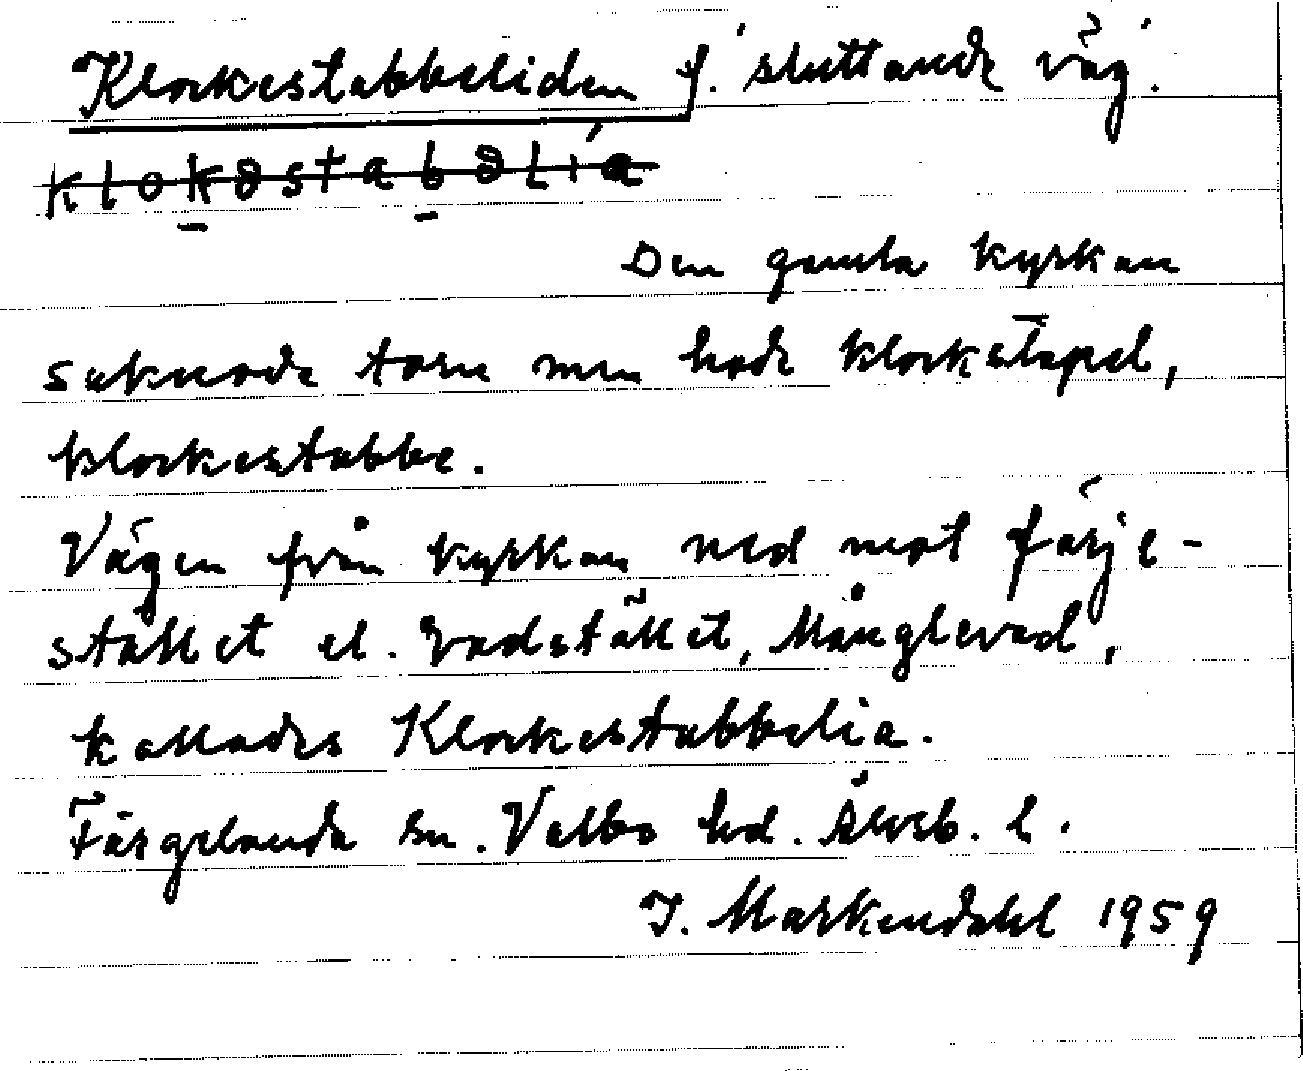 Klockestabbeliden f. sluttande väg.
klokəstabəlia
Den gamla kyrkan
saknade torn men hade klockstapel,
klockestabbe.
Vägen från kyrkan ned mot färje-
stället el. vadstället, Månglevad,
kallades Klockestabbelia.
Färgelanda sn. Valbo hd. Älvsb. l.
I. Markendahl 1959